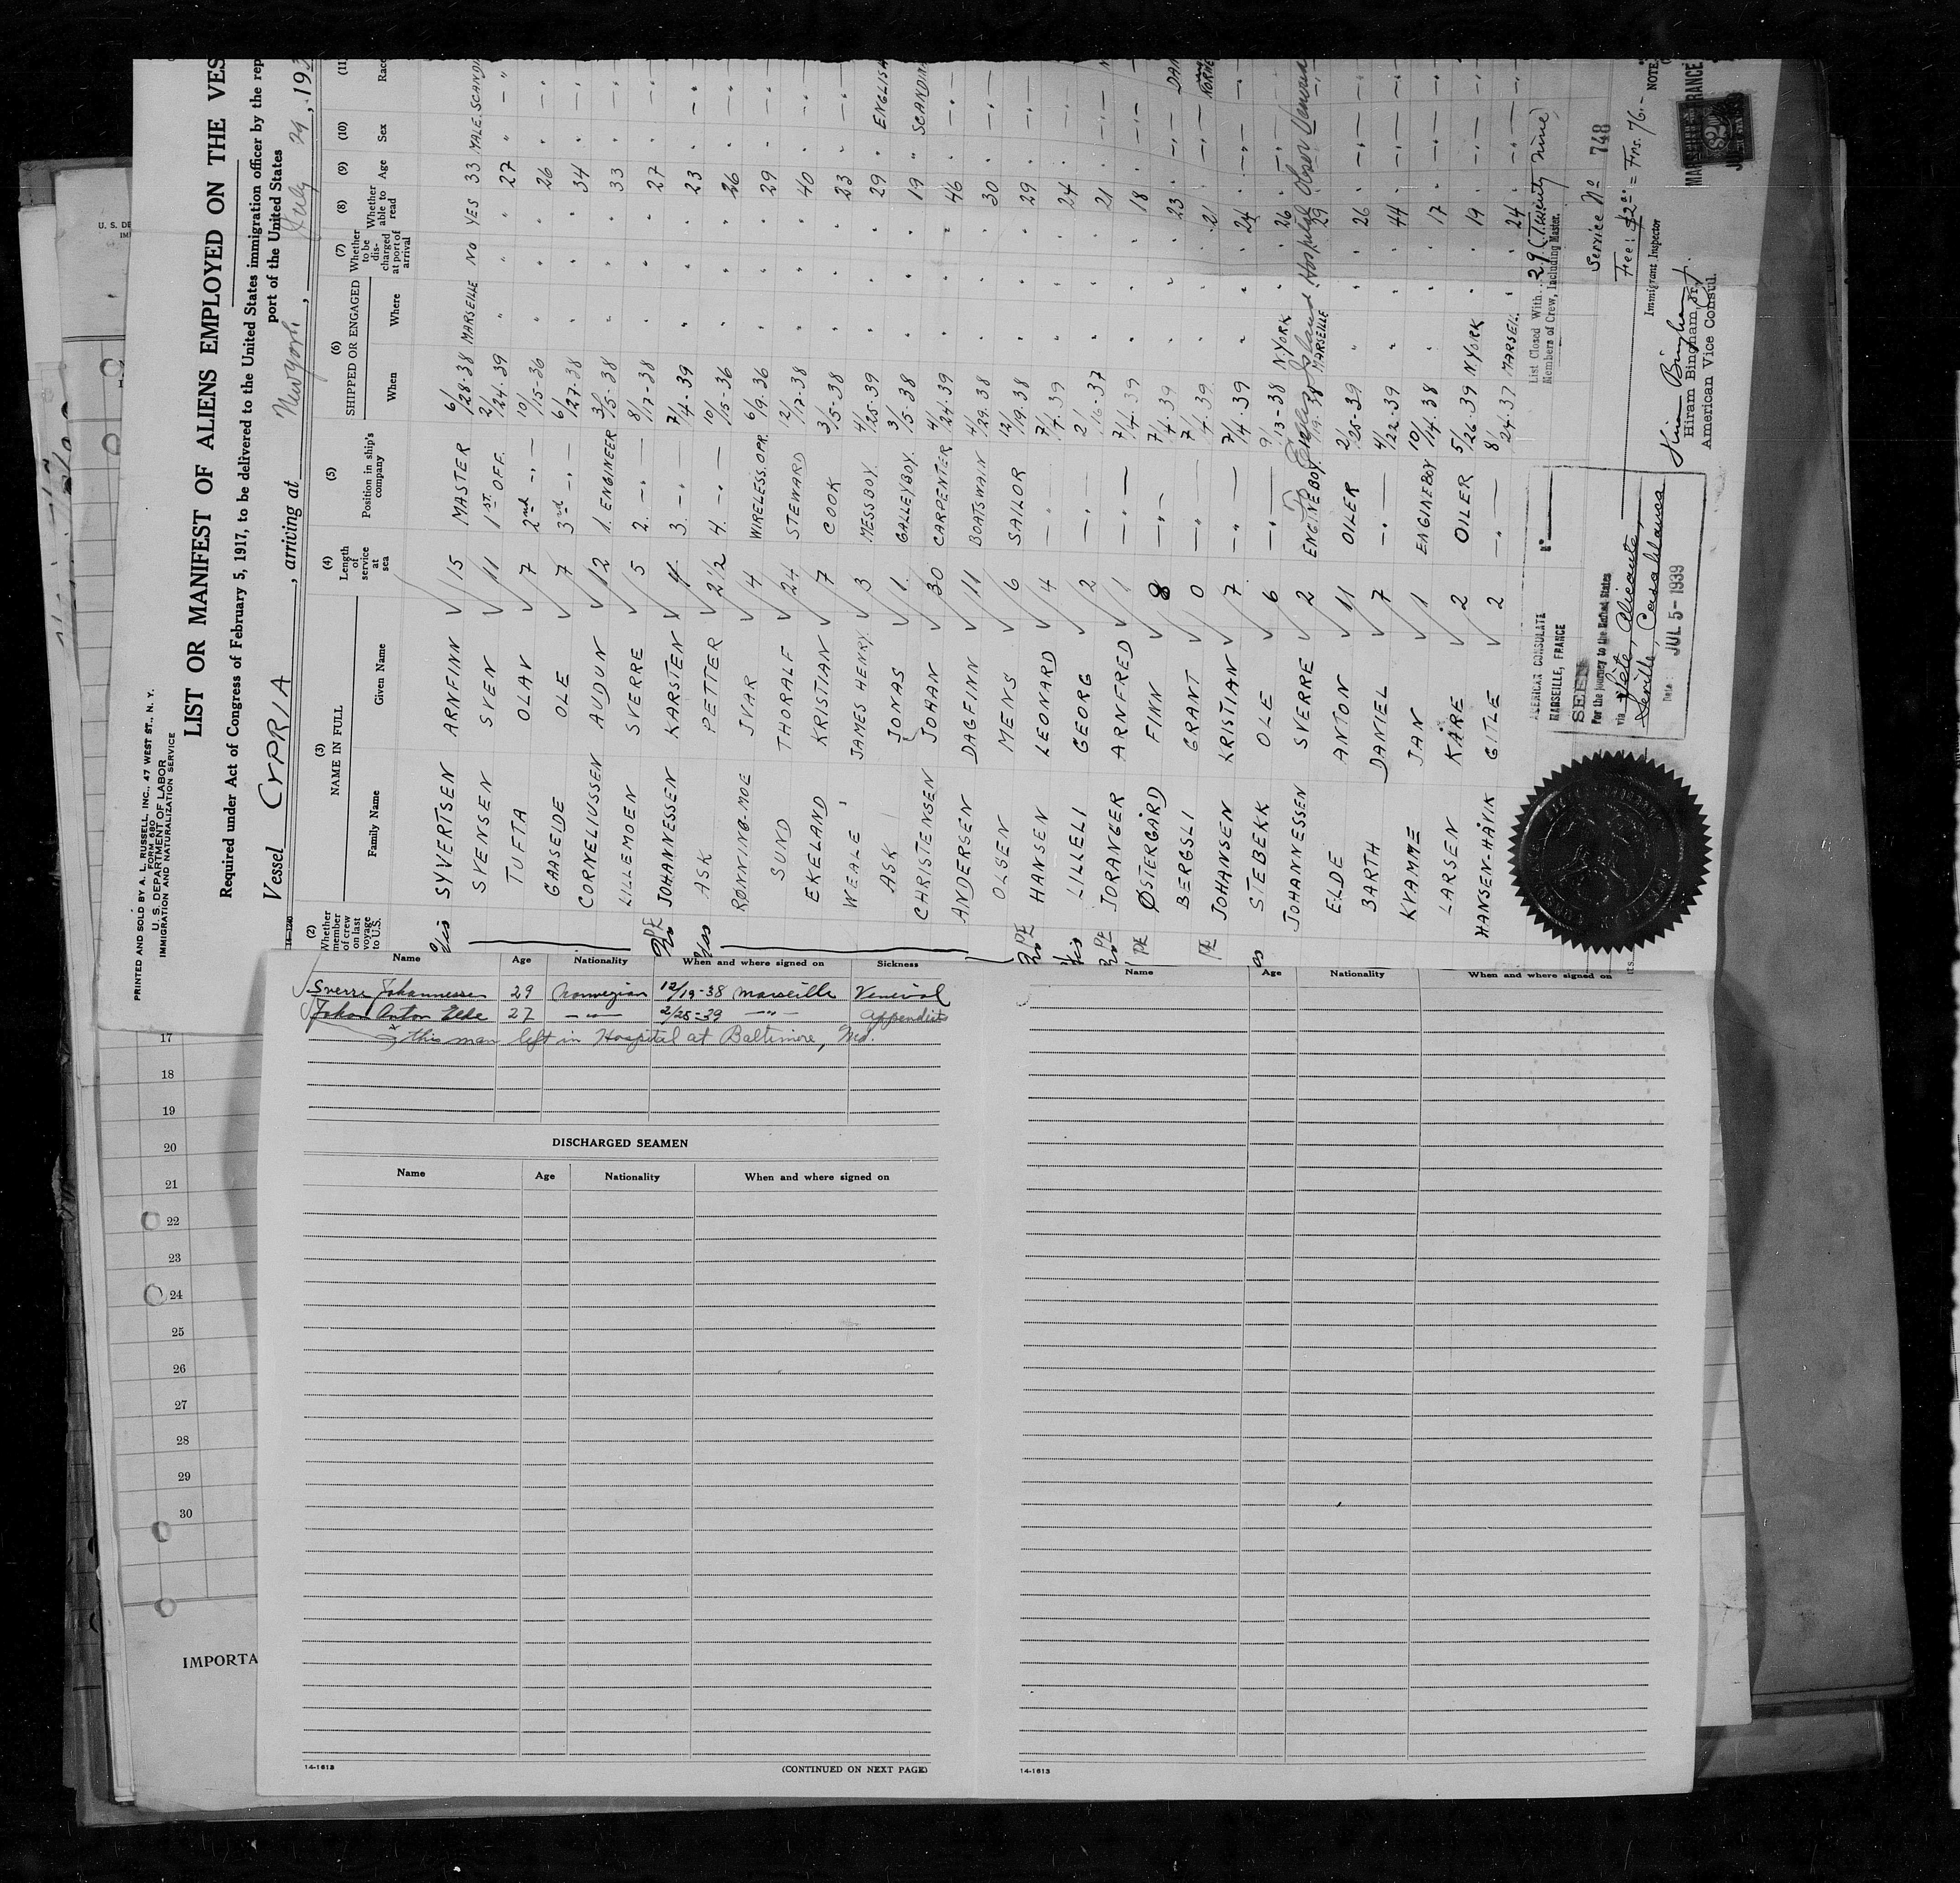 PRINTED AND SOLD BY A. L. RUSSELL, INC., 47 WEST ST., N. Y.
FORM 680
U. S. DEPARTMENT OF LABOR
IMMIGRATION AND NATURALIZATION SERVICE
LIST OR MANIFEST OF ALIENS EMPLOYED ON THE VES
Required under Act of Congress of February 5, 1917, to be delivered to the United States immigration officer by the rep
port of the United States
Vessel CYPRIA, arriving at New York, July 29, 193
(2) (3) (4) (5) (6) (7) (8) (9) (10) (11)
Whether member of crew on last voyage to U.S. NAME IN FULL Length of service at sea Position in ship's company SHIPPED OR ENGAGED Whether to be discharged at port of arrival Whether able to read Age Sex Race
Family Name Given Name When Where
Yes SYVERTSEN ARNFINN √ 15 MASTER 6/28-38 MARSEILLE NO YES 33 MALE SCANDI
SVENSEN SVEN √ 11 1ST OFF. 2/24-39 " " " 27 " -"
TUFTA OLAV √ 7 2nd -"- 10/15-36 " " " 26 " -"-
GAASEIDE OLE √ 7 3rd -"- 6/27-38 " " " 34 " -"-
CORNELIUSSEN AUDUN √ 12 1. ENGINEER 3/15-38 " " " 33 " -"-
LILLEMOEN SVERRE √ 5 2. -"- 8/17-38 " " " 27 " -"-
No PE JOHANNESSEN KARSTEN √ 4 3. -"- 7/4-39 " " " 23 " -"-
Yes ASK PETTER √ 2 1/2 4. -"- 10/15-36 " " " 26 " -"-
RØNNING-MOE IVAR √ 4 WIRELESS. OPR. 6/9-36 " " " 29 " -"-
SUND THORALF √ 24 STEWARD 12/17-38 " " " 40 " -"-
EKELAND KRISTIAN √ 7 COOK 3/15-38 " " " 23 " -"-
WEALE JAMES HENRY √ 3 MESSBOY. 4/25-39 " " " 29 " ENGLISH
ASK JONAS √ 1 GALLEYBOY. 3/15-38 " " " 19 " SCANDIN
CHRISTENSEN JOHAN √ 30 CARPENTER 4/24-39 " " " 46 " -"-
ANDERSEN DAGFINN √ 11 BOATSWAIN 4/29-38 " " " 30 " -"-
OLSEN MENS √ 6 SAILOR 12/19-38 " " " 29 " -"-
No PE HANSEN LEONARD √ 4 -"- 7/4-39 " " " 24 " -"-
Yes LILLELI GEORG √ 2 -"- 2/16-37 " " " 21 " -"-
No PE JORANGER ARNFRED √ 1 -"- 7/4-39 " " " 18 " -"-
PE ØSTERGÅRD FINN 8 -"- 7/4-39 " " " 23 " -"- DAN
PE BERGSLI GRANT √ 0 -"- 7/4-39 " " " 21 " -"- NORWE
JOHANSEN KRISTIAN √ 7 -"- 7/4-39 " " " 24 " -"-
STEBEKK OLE √ 6 -"- 9/13-38 N.YORK " " 26 " -"-
JOHANNESSEN SVERRE √ 2 ENGINEBOY. 12/19-38 MARSEILLE 29
To Ellis Island Hospital
ELDE ANTON √ 11 OILER 2/25-39 " " " 26 " -"-
BARTH DANIEL √ 7 -"- 4/22-39 " " " 44 " -"-
KVAMME JAN √ 1 ENGINEBOY 10/14-38 " " " 17 " -"-
LARSEN KÅRE √ 2 OILER 5/26-39 N.YORK " " 19 " -"-
HANSEN-HÅVIK GITLE √ 2 -"- 8/24-37 MARSEIL. " " 24 " -"-
List Closed With 29 (Twenty nine)
Members of Crew, Including Master.
AMERICAN CONSULATE
MARSEILLE, FRANCE
SEEN
For the journey to the United States
via Sète, Alicante,
Seville, Casablanca
Date: JUL 5 - 1939
Service No 748
Fee: $2.00 = Frs. 76.-
Immigrant Inspector
Hiram Bingham, Jr.
Hiram Bingham, Jr.
American Vice Consul.
NOTE
MARSEILLE FRANCE
$2
U. S. DE
Name Age Nationality When and where signed on Sickness
Sverre Johannessen 29 Norwegian 12/19-38 Marseille Veneral
Johan Anton Elde 27 -"- 2/25-39 -"- Appendicts
x this man left in Hospital at Baltimore, Md.
DISCHARGED SEAMEN
Name Age Nationality When and where signed on
14-1613 (CONTINUED ON NEXT PAGE)
Name Age Nationality When and where signed on
14-1613
17
18
19
20
21
22
23
24
25
26
27
28
29
30
IMPORTA